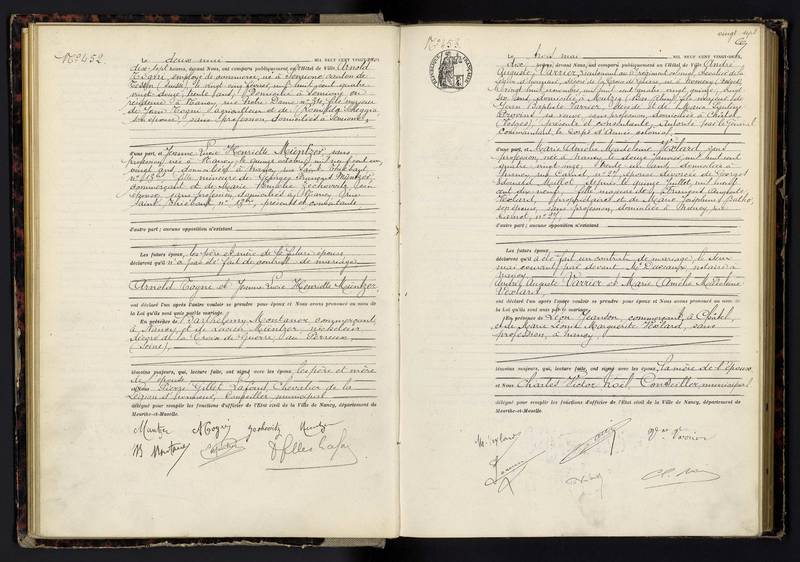 N° 452.
Le deux mai MIL NEUF CENT VINGT-DEUX,
dix-sept heures, devant Nous, ont comparu publiquement en l'Hôtel de Ville Arnold
Togni, employé de commerce, né à Somvico, canton de
Tessin (Suisse), le vingt cinq février mil huit cent quatre-
vingt douze, trente ans, domicilié à Sonvico ou
résidence à Nancy, rue Notre Dame n° 34, fils majeur
de Jean Togni, et de Romilda
son épouse, sans profession, domiciliés à Sonvico,
d'une part, et Jeanne Lucie Henriette Müentzer, sans
profession, née à Nancy, le quinze mil neuf cent un,
vingt ans, domiciliée à Nancy, rue Saint Thiébaut
n° 13bis, fille mineure de Georges François Müentzer,
commerçant et de Marie Eulalie Zechovitz son
épouse, sans profession, domiciliés à Nancy, rue
Saint Thiébaut n° 13bis, présents et consentants
d'autre part; aucune opposition n'existant
Les futurs époux, les père et mère de la future épouse,
déclarent qu'il n'a pas été fait de contrat de mariage.
Arnold Togni et Jeanne Lucie Henriette Müentzer
ont déclaré l'un après l'autre vouloir se prendre pour époux et Nous avons prononcé au nom de
la Loi qu'ils sont unis par le mariage.
En présence de Barthélemy Montanor, commerçant
à Nancy, et de Lucien Müentzer, nickeleur
décoré de la Croix de Guerre, au Perreux
(Seine),
témoins majeurs, qui, lecture faite, ont signé avec les époux, les père et mère
de l'épouse
et Nous Pierre Gillet Lafond Chevalier de la
Légion d'honneur, Conseiller municipal
délégué pour remplir les fonctions d'officier de l'État civil de la Ville de Nancy, département de
Meurthe-et-Moselle.
Muntzer A Togni Zechovitz
vingt sept
N° 453
Le trois mai MIL NEUF CENT VINGT-DEUX,
dix heures, devant Nous, ont comparu publiquement en l'Hôtel de Ville André
Auguste Varrier, Lieutenant au régiment colonial, Chevalier de la
Légion d'honneur, décoré de la Croix de Guerre, né à Nomexy (Vosges)
le vingt huit novembre mil huit cent quatre vingt quinze, vingt
six ans, domicilié à fils majeur de
Jean Baptiste Varrier, décédé et de Maria
sa veuve, sans profession, domiciliée à Châtel,
(Vosges), présente et consentante. Autorisé par le Général
Commandant le Corps d'Armée colonial,
d'une part, et Marie Amélie Madeleine Volard, sans
profession, née à Nancy, le douze janvier mil huit cent
quatre vingt onze, trente un ans, domiciliée à
Nancy, rue Carnot, n° 27, épouse divorcée de Georges
Edouard depuis le quinze juillet mil neuf
cent dix neuf, fille majeure de François Auguste
Volard, propriétaire et de Marie Joséphine
son épouse, sans profession, domiciliés à Nancy, rue
Carnot, n° 27,
d'autre part; aucune opposition n'existant
Les futurs époux,
déclarent qu'il a été fait un contrat de mariage le deux
mai courant, par devant Me notaire à
Nancy
André Auguste Varrier et Marie Amélie Madeleine
Volard
ont déclaré l'un après l'autre vouloir se prendre pour époux et Nous avons prononcé au nom de
la Loi qu'ils sont unis par le mariage.
En présence de Léon Jeandon, commerçant, à Châtel,
et de Marie Léonie Marguerite Volard, sans
profession, à Nancy,
témoins majeurs, qui, lecture faite, ont signé avec les époux, la mère de l'époux
et Nous Charles Victor Noël, Conseiller municipal
délégué pour remplir les fonctions d'officier de l'État civil de la Ville de Nancy, département de
Meurthe-et-Moselle.